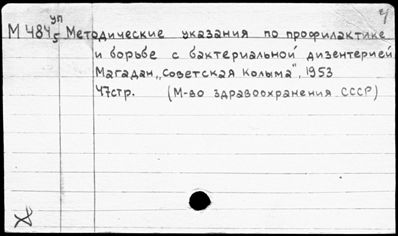 уп
М 484/5 Методические указания по профилактике
и борьбе с бактериальной дизентерией
Магадан, „Советская Колыма", 1953
47стр. (М-во здравоохранения СССР)